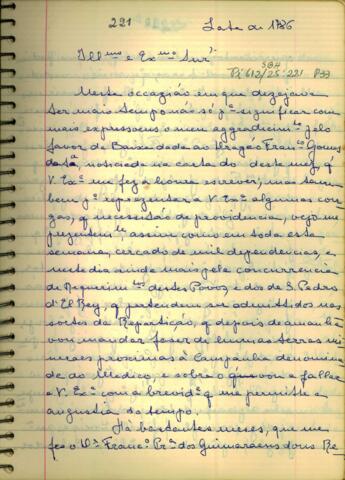 221 Lata de 1786
SGH
Pi 612/25:221 P33
Illmo e Exmo Snr
Nesta occazião em que dezejava
ter mais tempo não só pa significar com
mais expressoens o meu aggradecimto pelo
favor da Baixa dada ao Dragão Franco Gomes
da Sa, noticiada na carta do deste mez, q'
V. Exa me fez a honra escrever, mas tam
bem pa representar a V. Exa algumas cou
zas, q' necessitão de providencia, vejo-me
prezentemte, assim como em toda esta
semana, cercado de mil dependencias, e
neste dia ainda mais pela concurrencia
de Requerimtos destes Povos e dos de S. Pedro
d'El Rey, q' pertendem ser admittidos nas
sortes da Repartição, q' depois de amanhã
vou mandar fazer de humas terras mi
neraes proximas à Campanha denomina
da do Medico, e sobre o q' vou a fallar
a V. Exa com a brevide q' me permitte a
angustia do tempo.
Ha bastantes mezes, que me
fez o Dr Franco Pra dos Guimaraens dous Re